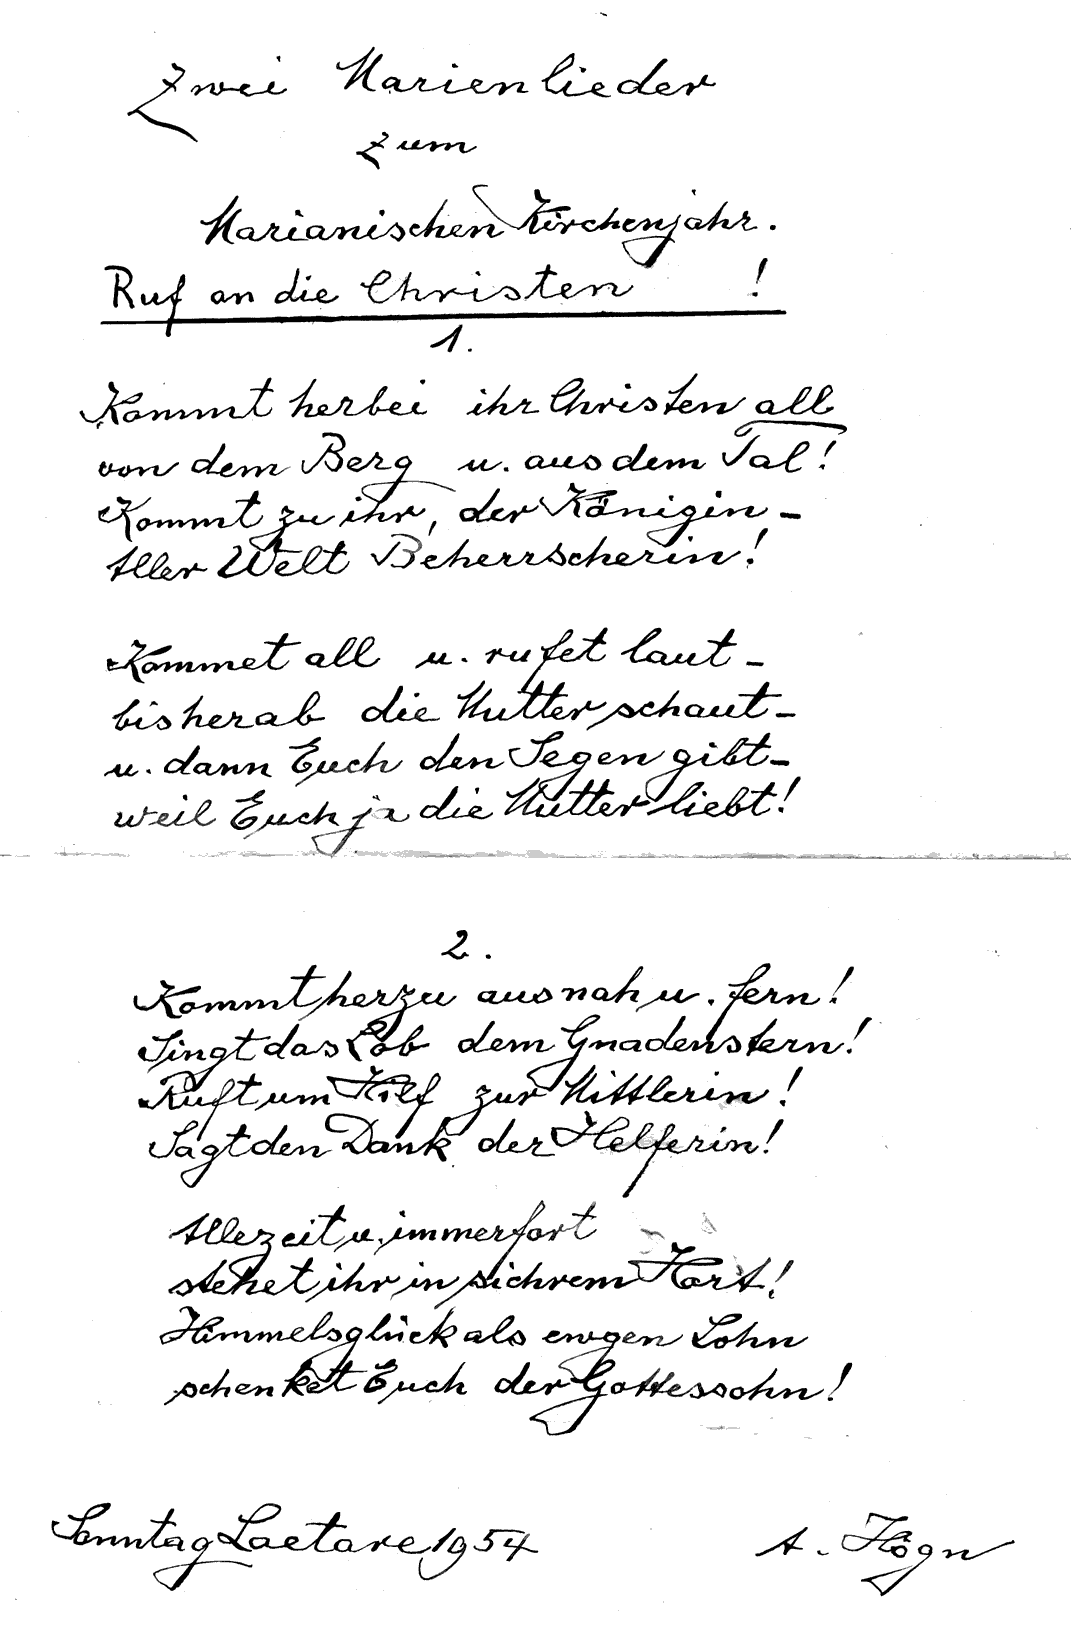 Zwei Marienlieder
zum
Marianischen Kirchenjahr.
Ruf an die Christen !
1.
Kommt herbei ihr Christen all
von dem Berg u. aus dem Tal!
Kommt zu ihr, der Königin –
Aller Welt Beherrscherin!
Kommet all u. rufet laut –
bis herab die Mutter schaut –
u. dann Euch den Segen gibt –
weil Euch ja die Mutter liebt!
2.
Kommt herzu aus nah u. fern!
Singt das Lob dem Gnadenstern!
Ruft um Hilf zur Mittlerin!
Sagt den Dank der Helferin!
Allezeit u. immerfort
stehet ihr in sichrem Hort!
Himmelsglück als ewgen Lohn
schenket Euch der Gottessohn!
Sonntag Laetare 1954 A. Högn